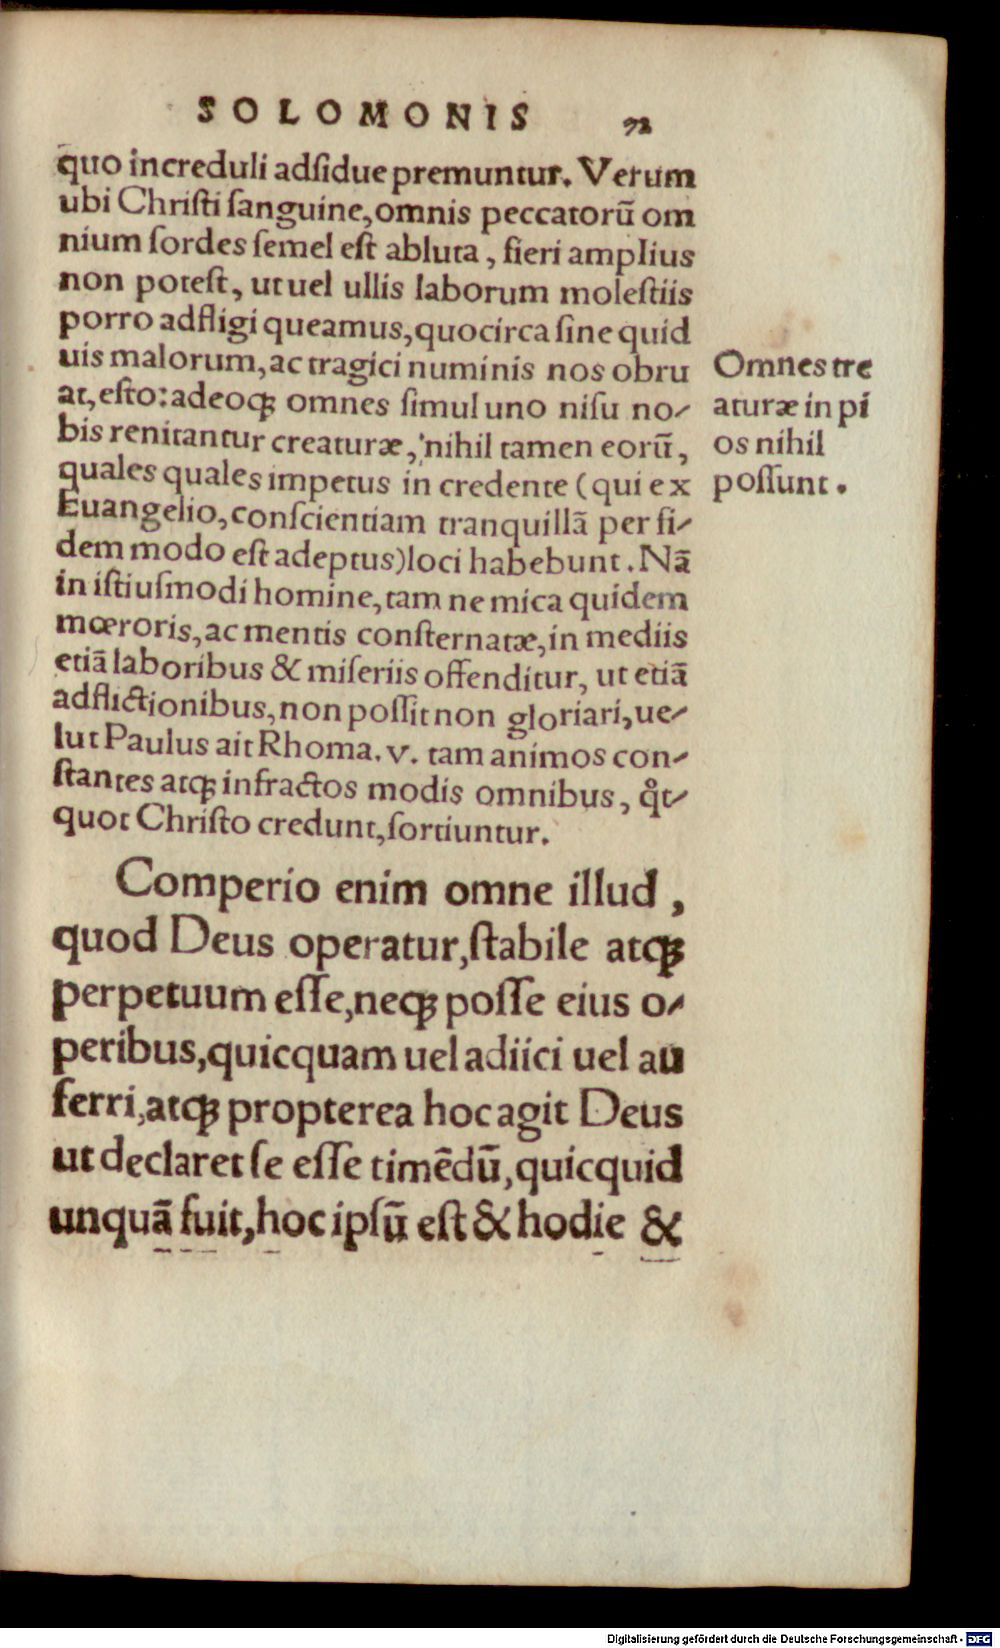 SOLOMONIS 72
quo increduli adſidue premuntur. Verum
ubi Chriſti ſanguine, omnis peccatorũ om
nium ſordes ſemel eſt abluta, fieri amplius
non poteſt, ut uel ullis laborum moleſtiis
porro adfligi queamus, quocirca ſine quid
uis malorum, ac tragici numinis nos obru
at, eſto: adeoq́ꝫ omnes ſimul uno niſu no-
bis renitantur creaturæ, nihil tamen eorũ,
quales quales impetus in credente (qui ex
Euangelio, conſcientiam tranquillã per fi-
dem modo eſt adeptus) loci habebunt. Nã
in iſtiuſmodi homine, tam ne mica quidem
mœroris, ac mentis conſternatæ, in mediis
etiã laboribus & miſeriis offenditur, ut etiã
adflictionibus, non poſſit non gloriari, ue-
lut Paulus ait Rhoma. v. tam animos con-
ſtantes atqꝫ infractos modis omnibus, q̊t-
quot Chriſto credunt, ſortiuntur.
Omnes tre
aturæ in pi
os nihil
poſſunt.
Comperio enim omne illud,
quod Deus operatur, ſtabile atqꝫ
perpetuum eſſe, neqꝫ poſſe eius o-
peribus, quicquam uel adiici uel au
ferri, atqꝫ propterea hoc agit Deus
ut declaret ſe eſſe timẽdũ, quicquid
unquã fuit, hoc ipſũ eſt & hodie &
Digitalisierung gefördert durch die Deutsche Forschungsgemeinschaft - DFG